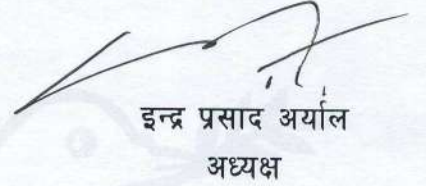 इन्द्र प्रसाद अर्याल
अध्यक्ष